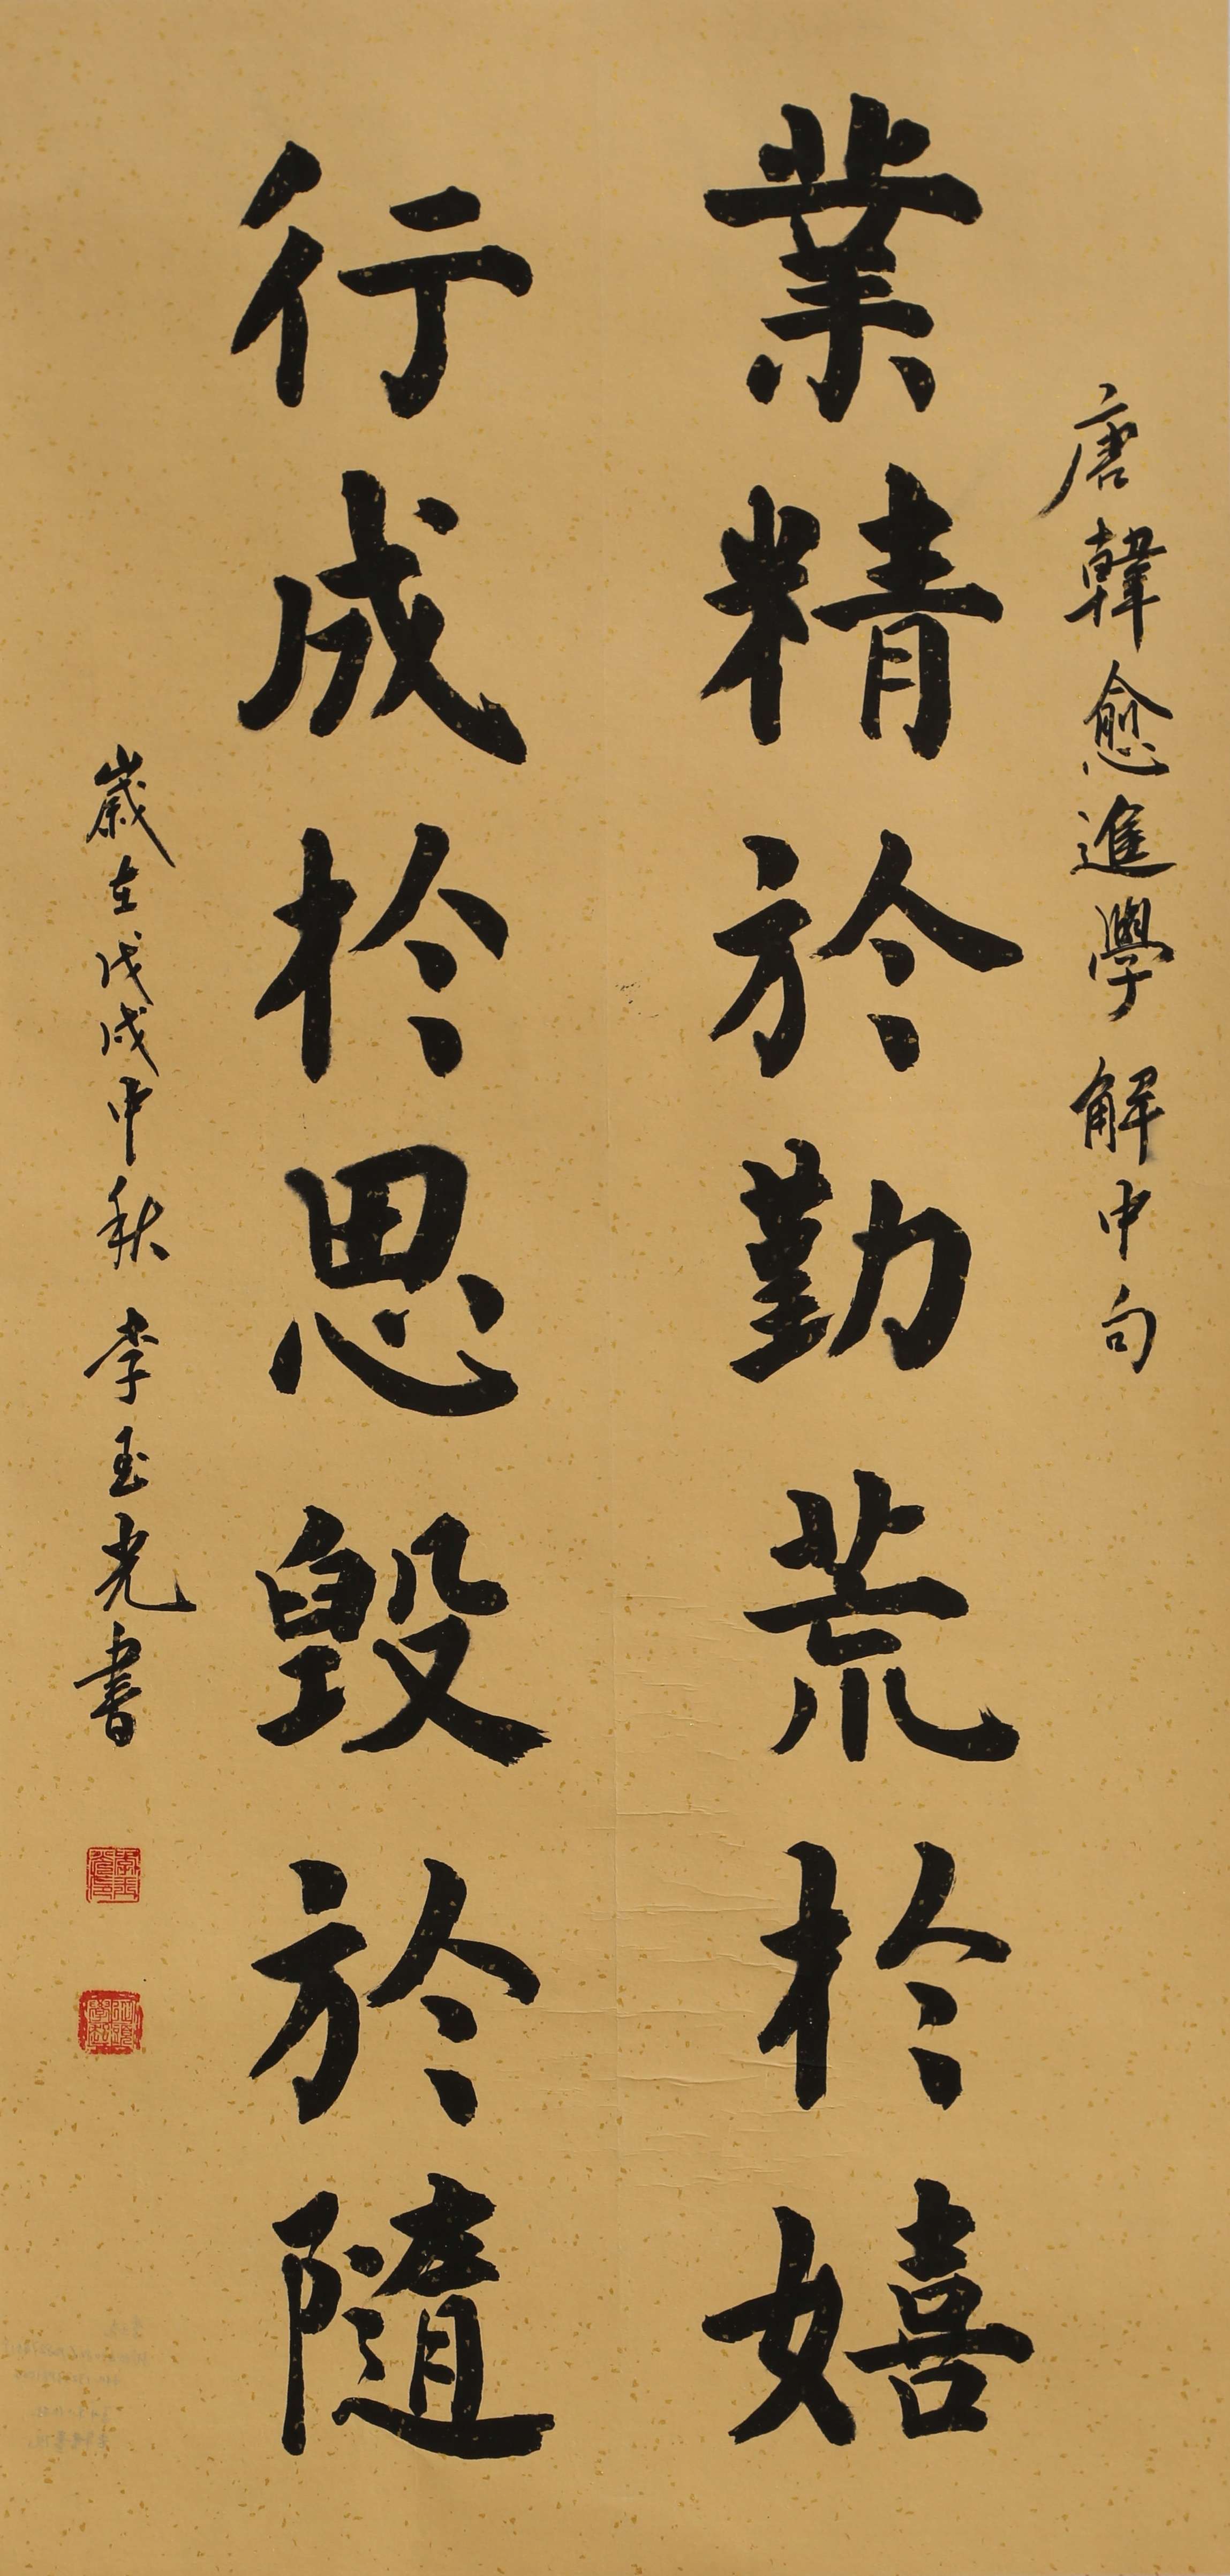 唐韓愈進學解中句
業精於勤荒於嬉
行成於思毀於隨
歲在戊戌中秋李玉光書